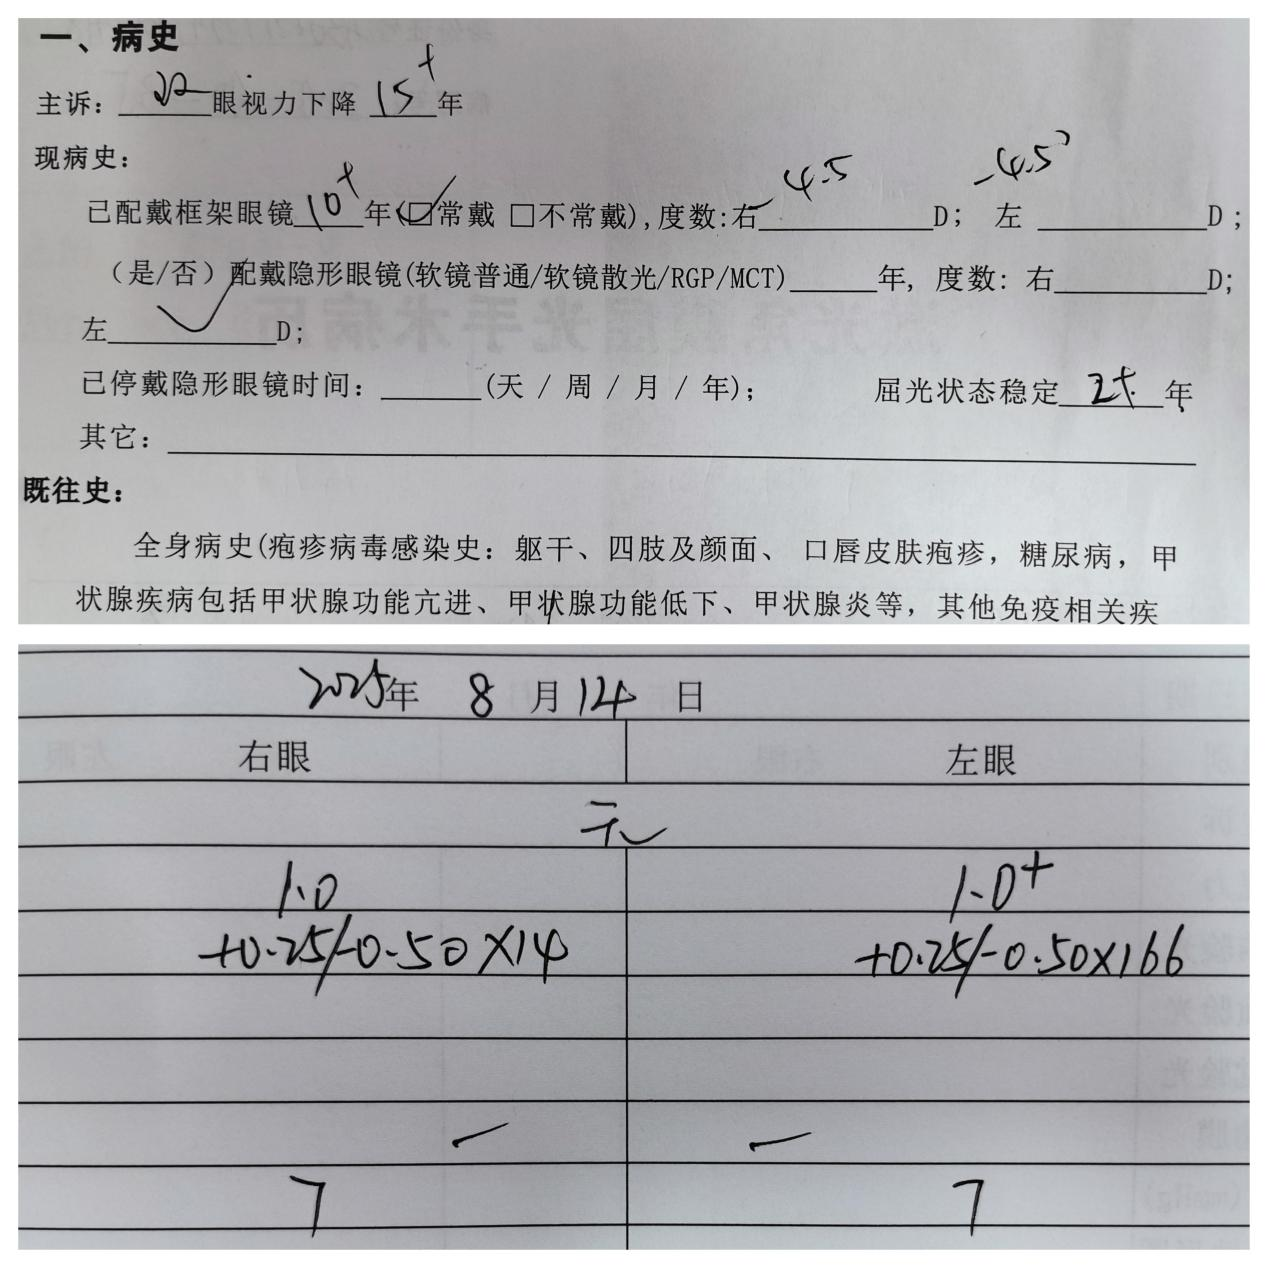 一、病史
主诉：双眼视力下降 15+年
现病史：
已配戴框架眼镜10+年(☑常戴 □不常戴),度数:右-4.5D； 左 -4.5D；
（是/否）配戴隐形眼镜(软镜普通/软镜散光/RGP/MCT)______年, 度数: 右______D;
左______D;
已停戴隐形眼镜时间：______(天 / 周 / 月 / 年)； 屈光状态稳定 2+年
其它：
既往史：
全身病史(疱疹病毒感染史：躯干、四肢及颜面、 口唇皮肤疱疹，糖尿病，甲
状腺疾病包括甲状腺功能亢进、甲状腺功能低下、甲状腺炎等，其他免疫相关疾
2025年 8月14日
右眼 左眼
无
1.0 1.0+
+0.25/-0.50×14 +0.25/-0.50×166
— —
7 7